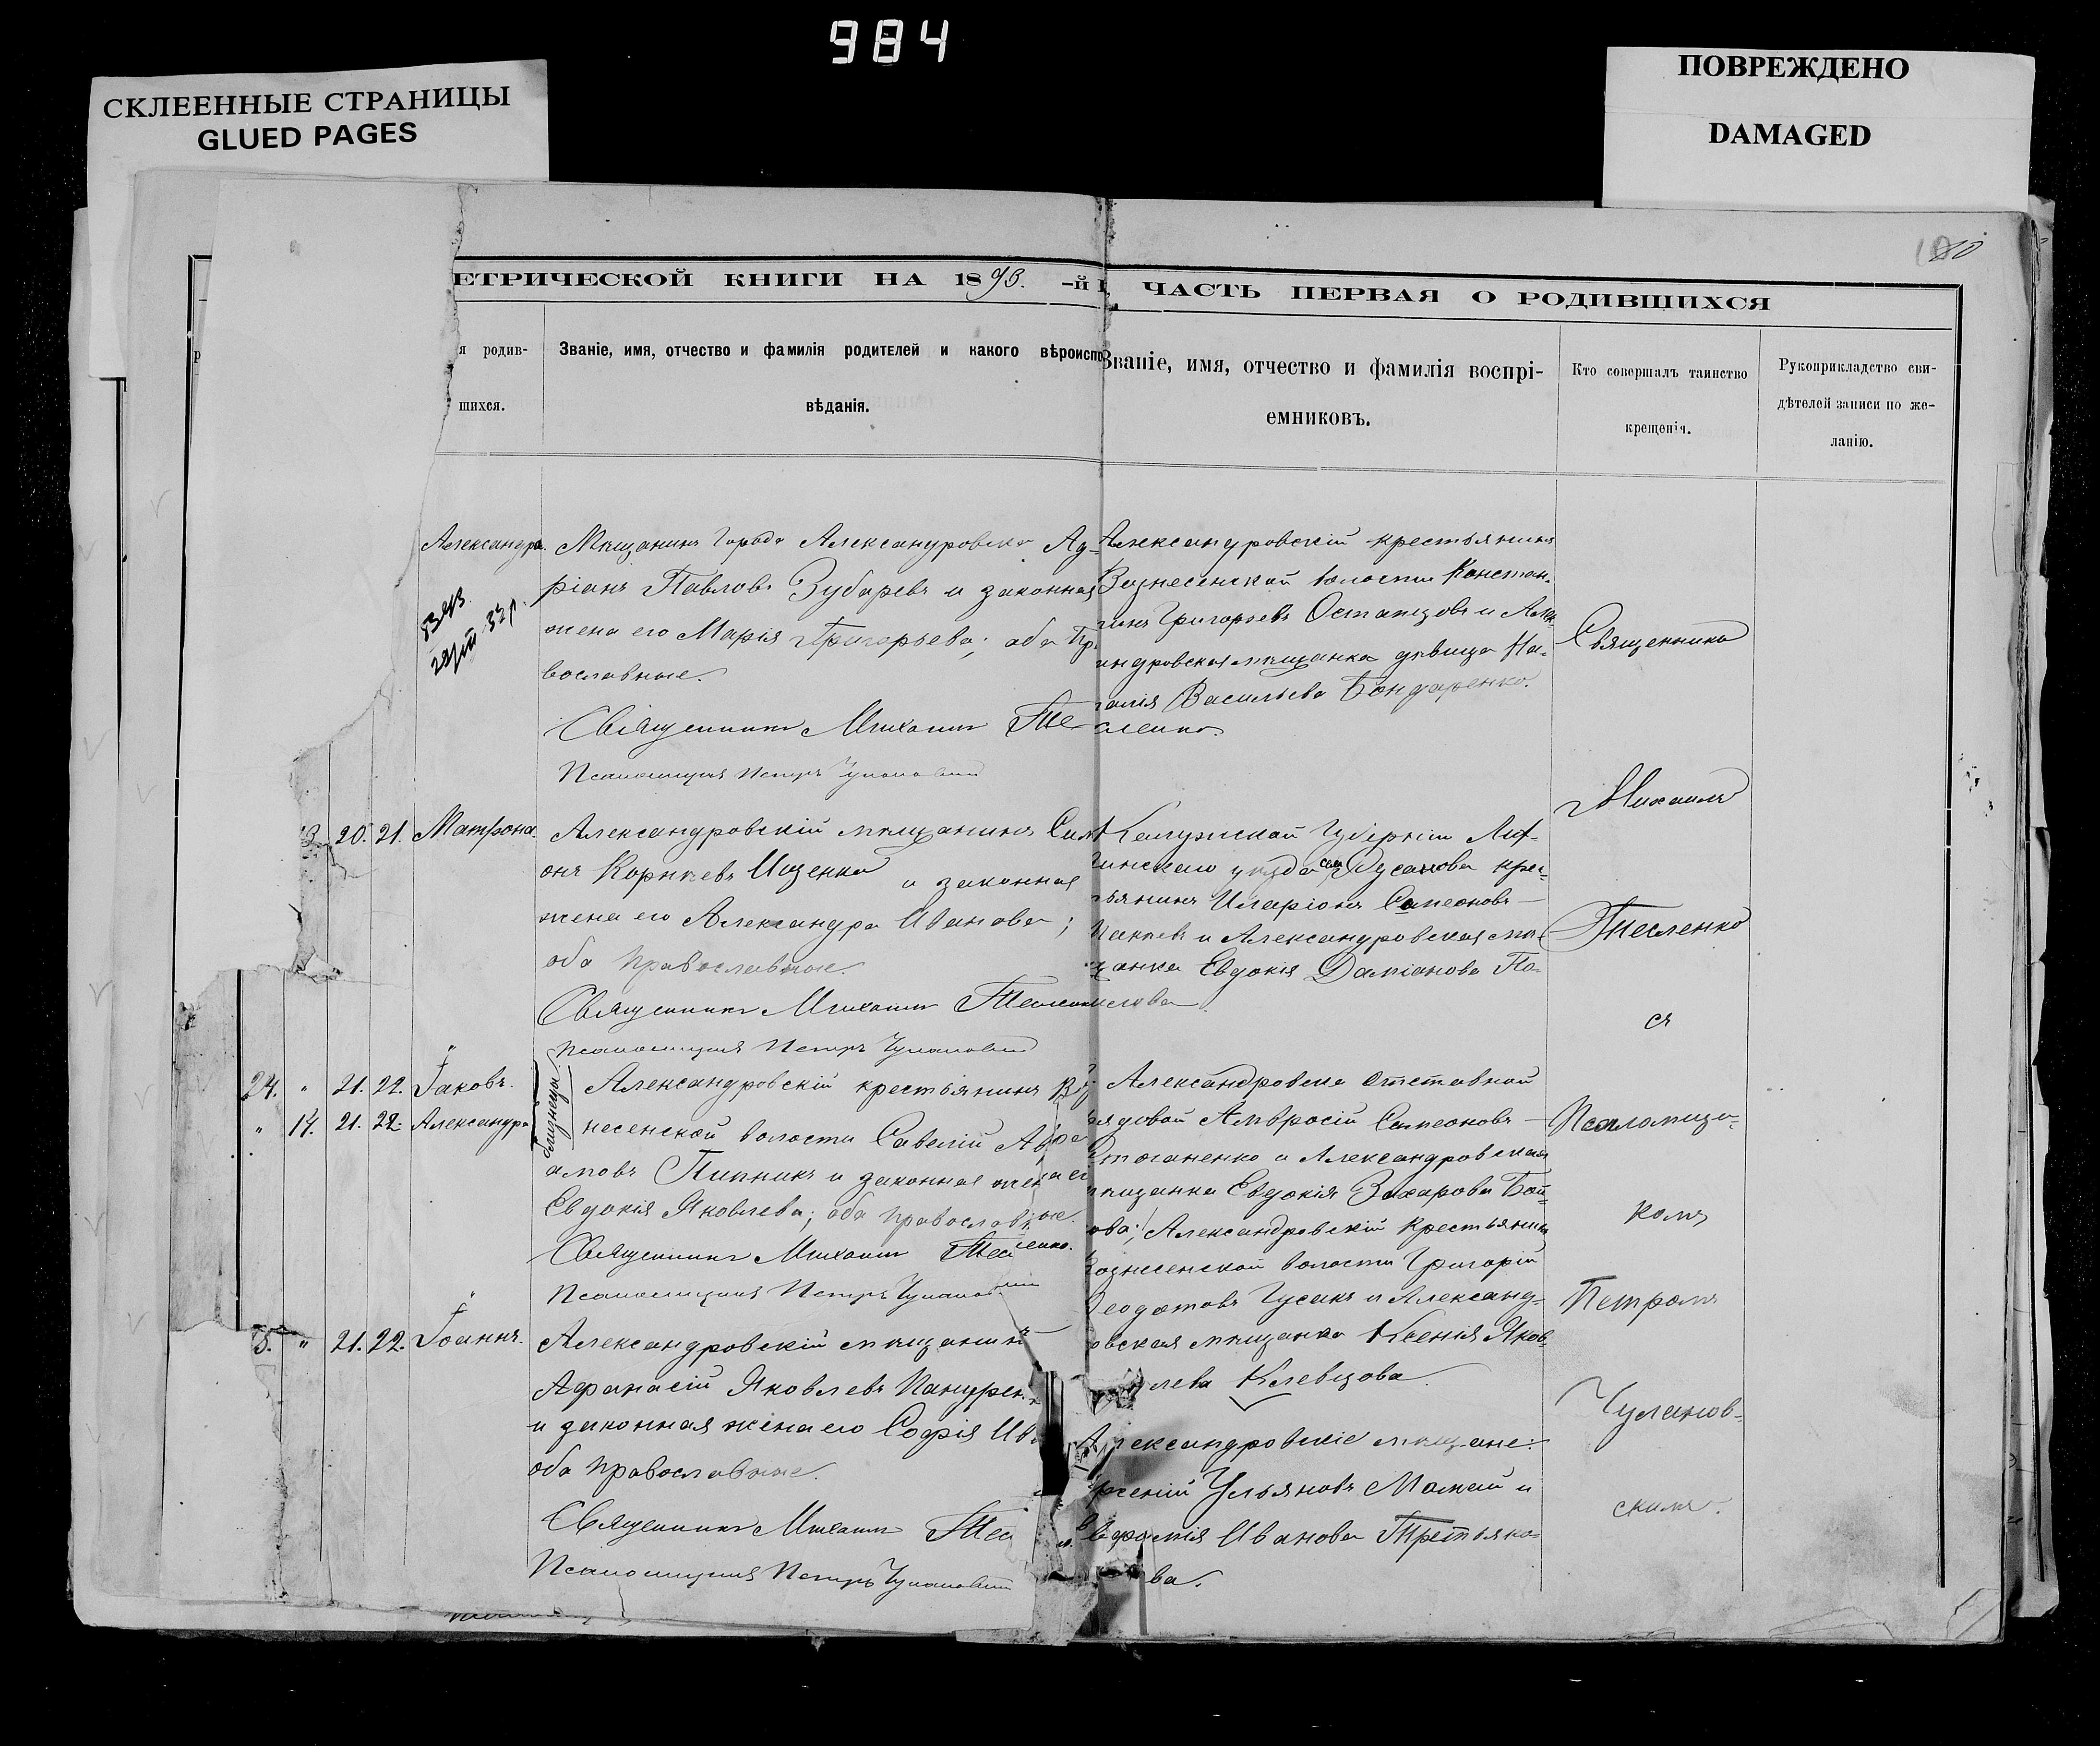 984
СКЛЕЕННЫЕ СТРАНИЦЫ
GLUED PAGES
ПОВРЕЖДЕНО
DAMAGED
ЕТРИЧЕСКОЙ КНИГИ НА 1893. -й
ЧАСТЬ ПЕРВАЯ О РОДИВШИХСЯ
я родив-
шихся.
Званіе, имя, отчество и фамилія родителей и какого вѣроиспо
вѣданія.
Званіе, имя, отчество и фамилія воспрі-
емниковъ.
Кто совершалъ таинство
крещенія.
Рукоприкладство сви-
дѣтелей записи по же-
ланію.
Александра.
Мѣщанинъ города Александровска Ад-
ріанъ Павловъ Зубаревъ и законная
жена его Марія Григорьева; оба пр
вославные.
Священникъ Михаилъ Тесленко.
Псаломщикъ Петръ Чулановскій
Александровскій крестьянинъ
Вознесенской волости Констан-
тинъ Григорьевъ Остапцовъ и Алек-
андровская мѣщанка дѣвица На-
талія Васильева Бондаренко.
20. 21. Матрона.
Александровскій мѣщанинъ Сим
онъ Корнѣевъ Ищенко и законная
жена его Александра Иванова;
оба православные.
Священникъ Михаилъ
Псаломщикъ Петръ Чулановскій
Калужской губерніи
уѣзда сел. крес-
тьянинъ Иларіонъ Симеоновъ
и Александровская мѣ-
щанка Евдокія Даміанова По-
лова
24. " 21. 22. Іаковъ.
" 14. 21. 22. Александра
близнецы
Александровскій крестьянинъ Воз
несенской волости Савелій Авра
амовъ Пипникъ и законная жена ег
Евдокія Яковлева; оба православные.
Священникъ Михаилъ Тесленко.
Псаломщикъ Петръ Чулановскій
Г. Александровска отставной
рядовой Амвросій Симеоновъ
и Александровская
мѣщанка Евдокія Захарова Бой-
ова; Александровскій крестьянинъ
Вознесенской волости Григорій
Ѳеодотовъ Гусакъ и Александ-
ровская мѣщанка Ксенія Яков-
лева Клевцова.
5. " 21. 22. Іоаннъ.
Александровскій мѣщанинъ
Афанасій Яковлевъ
и законная жена его Софія Ив
оба православные.
Священникъ Михаилъ Тес
Псаломщикъ Петръ Чулановскій
Александровскіе мѣщане:
Ульяновъ Момай и
Иванова Третьяко-
ва.
Священникъ
Михаилъ
Тесленко
съ
Псаломщи-
комъ
Петромъ
Чуланов-
скимъ.